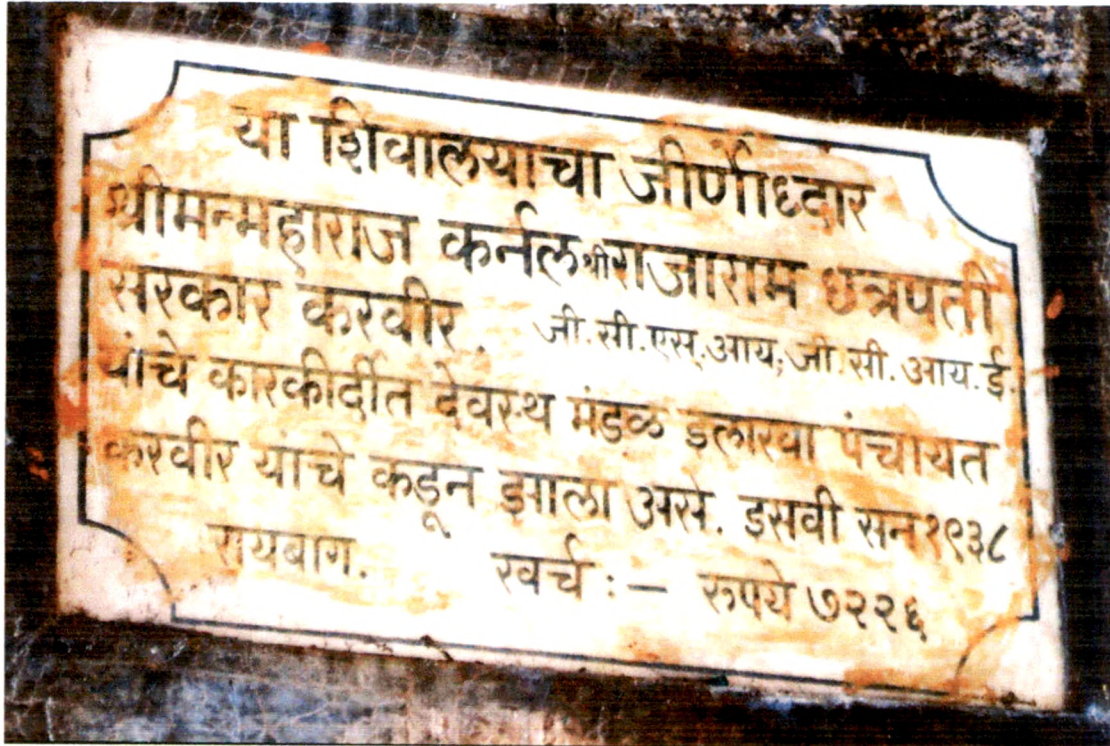 या शिवालयाचा जीर्णोध्दार
श्रीमन्महाराज कर्नल श्री राजाराम छत्रपती
सरकार करवीर. जी.सी.एस्.आय; जी.सी.आय.ई.
यांचे कारकीर्दीत देवस्थ मंडळ इलाखा पंचायत
करवीर यांचे कडून झाला असे. इसवी सन १९३८
रायबाग. खर्च :— रुपये ७२२६